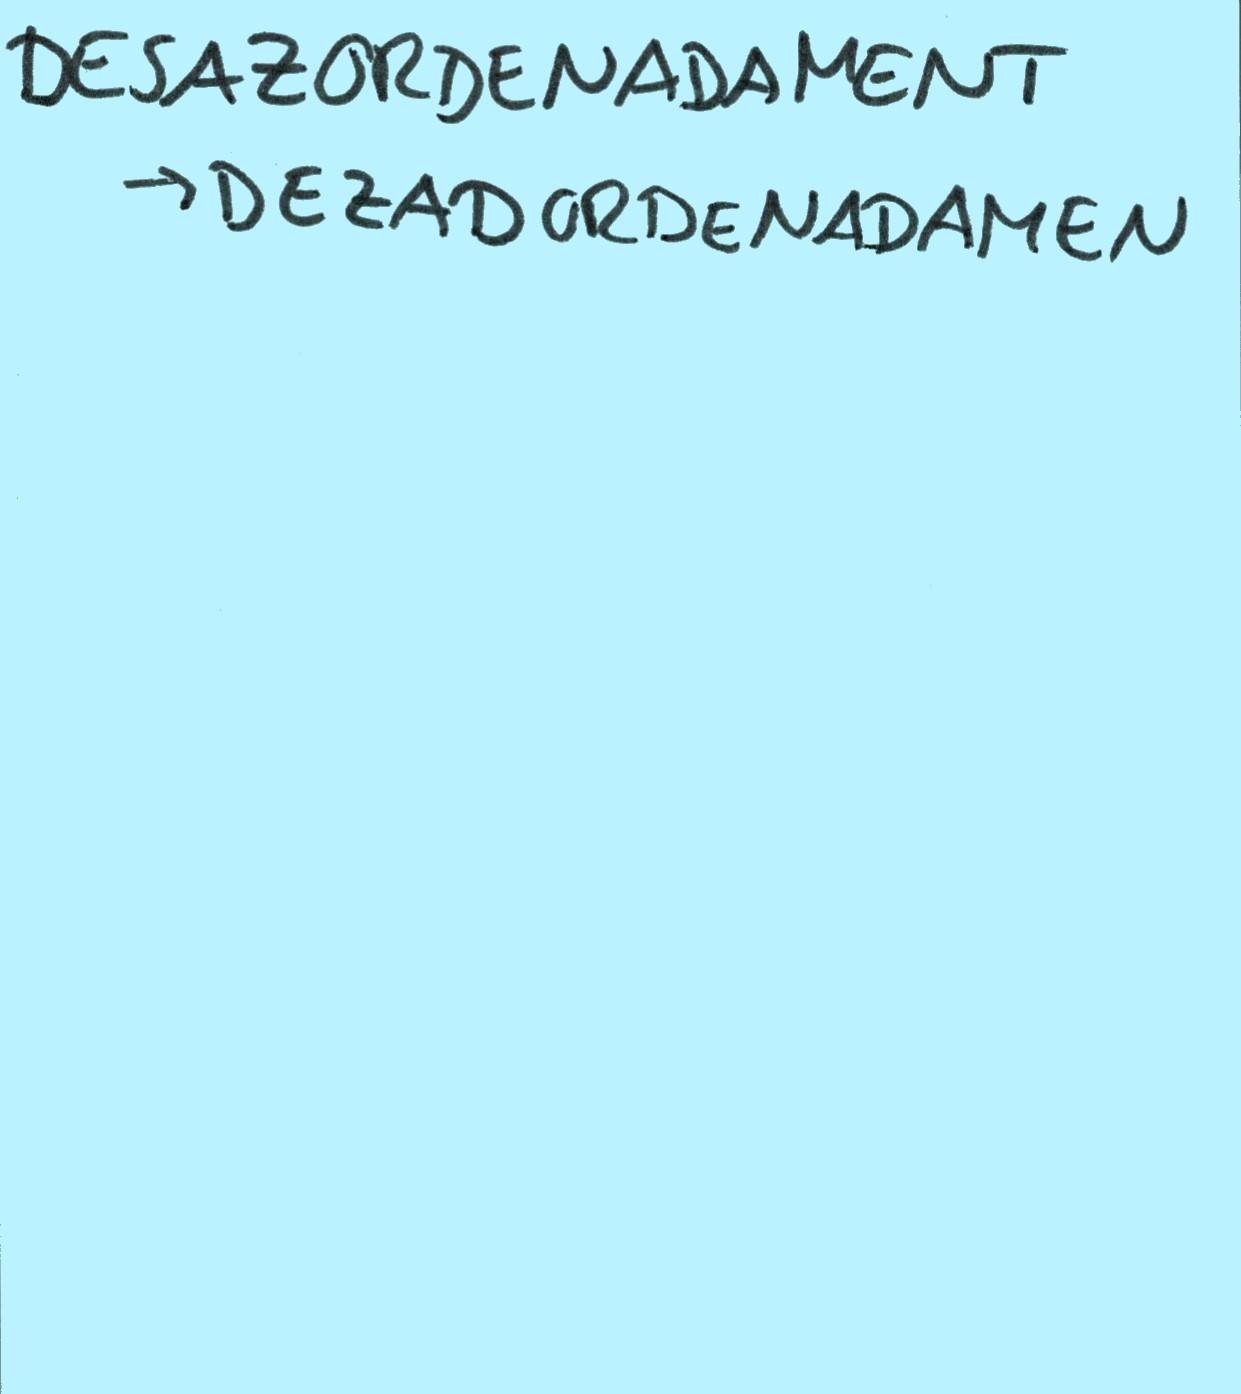 DESAZORDENADAMENT
→ DEZADORDENADAMEN